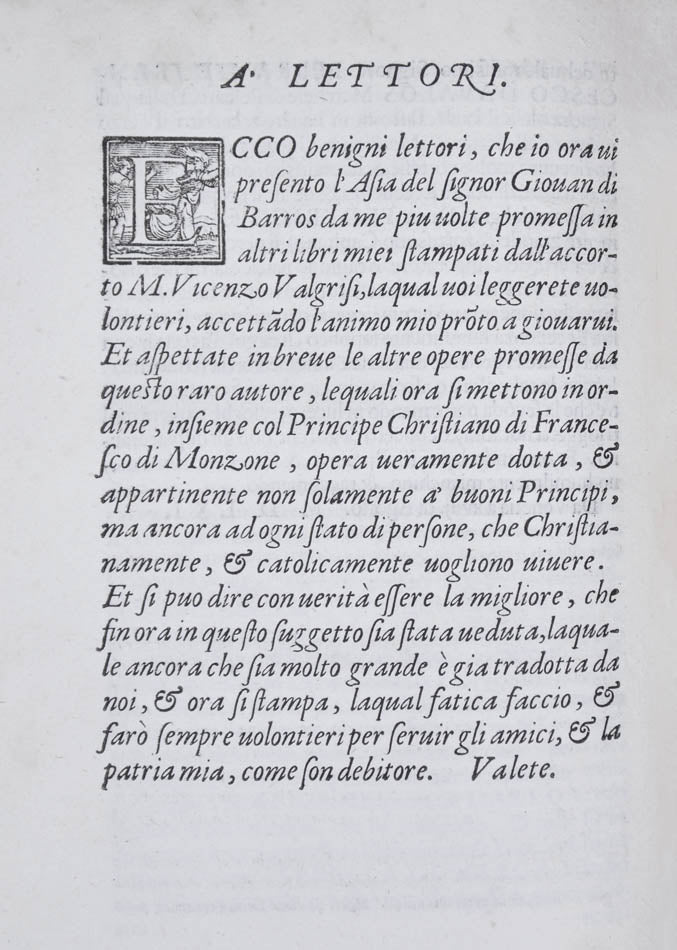 A' LETTORI.
ECCO benigni lettori, che io ora ui
preſento l'Aſia del ſignor Giouan di
Barros da me piu uolte promeſſa in
altri libri miei ſtampati dall'accor-
to M. Vicenzo Valgriſi, laqual uoi leggerete uo-
lontieri, accettãdo l'animo mio prõto a giouarui.
Et aſpettate in breue le altre opere promeſſe da
queſto raro autore, lequali ora ſi mettono in or-
dine, inſieme col Principe Chriſtiano di France-
ſco di Monzone, opera ueramente dotta, &
appartinente non ſolamente a' buoni Principi,
ma ancora ad ogni ſtato di perſone, che Chriſtia-
namente, & catolicamente uogliono uiuere.
Et ſi puo dire con uerità eſſere la migliore, che
fin ora in queſto ſuggetto ſia ſtata ueduta, laqua-
le ancora che ſia molto grande è gia tradotta da
noi, & ora ſi ſtampa, laqual fatica faccio, &
farò ſempre uolontieri per ſeruir gli amici, & la
patria mia, come ſon debitore. Valete.